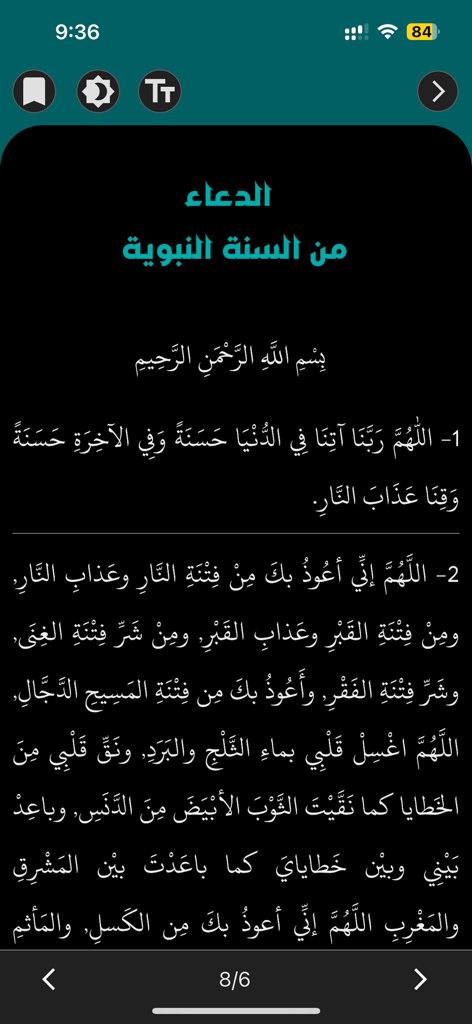 9:36
84
TT
الدعاء
من السنة النبوية
بِسْمِ اللَّهِ الرَّحْمَنِ الرَّحِيمِ
1- اللَّهُمَّ رَبَّنَا آتِنَا فِي الدُّنْيَا حَسَنَةً وَفِي الآخِرَةِ حَسَنَةً
وَقِنَا عَذَابَ النَّارِ.
2- اللَّهُمَّ إنِّي أعُوذُ بكَ مِنْ فِتْنَةِ النَّارِ وعَذابِ النَّارِ,
ومِنْ فِتْنَةِ القَبْرِ وعَذابِ القَبْرِ, ومِنْ شَرِّ فِتْنَةِ الغِنَى,
وشَرِّ فِتْنَةِ الفَقْرِ, وأَعُوذُ بكَ مِن فِتْنَةِ المَسِيحِ الدَّجَّالِ,
اللَّهُمَّ اغْسِلْ قَلْبِي بماءِ الثَّلْجِ والبَرَدِ, ونَقِّ قَلْبِي مِنَ
الخَطايا كما نَقَّيْتَ الثَّوْبَ الأبْيَضَ مِنَ الدَّنَسِ, وباعِدْ
بَيْنِي وبيْن خَطايايَ كما باعَدْتَ بيْن المَشْرِقِ
والمَغْرِبِ اللَّهُمَّ إنِّي أعوذُ بكَ مِن الكَسلِ, والمَأثمِ
8/6